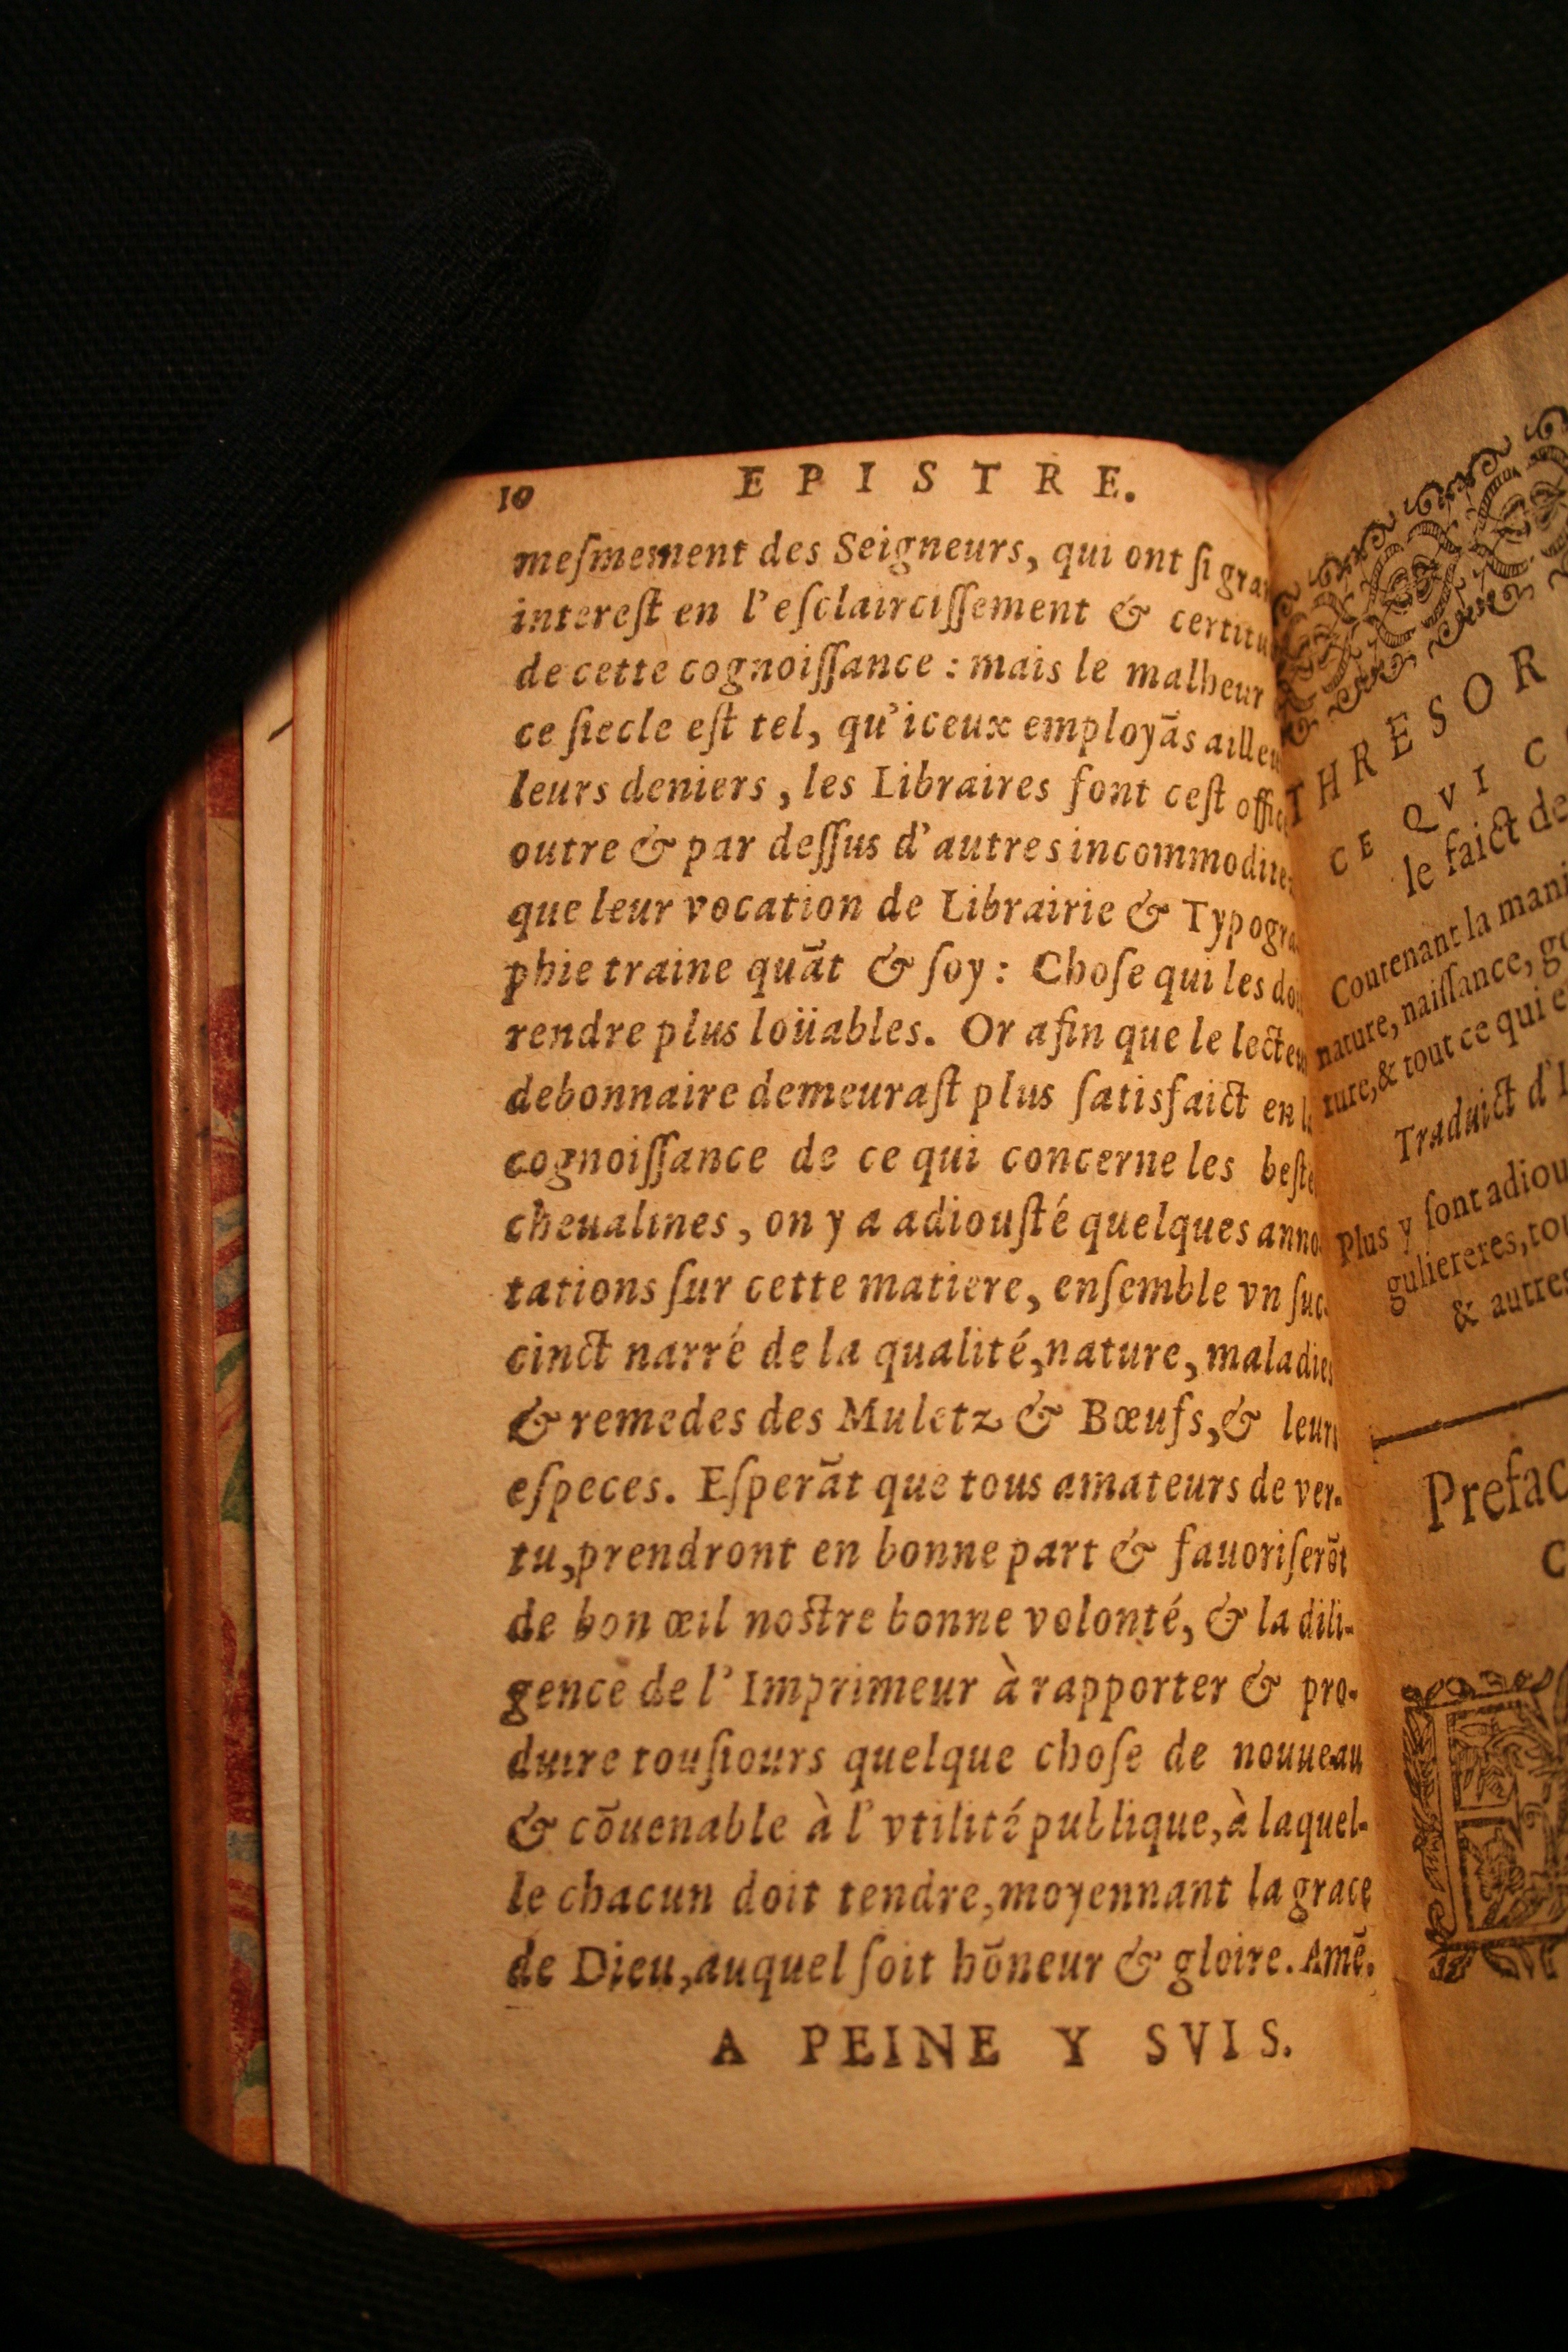 10 EPISTRE.
meſmement des Seigneurs, qui ont ſi
intereſt en l'eſclairciſſement &
de cette cognoiſſance : mais le malheur
ce ſiecle eſt tel, qu'iceux employãs
leurs deniers, les Libraires font ceſt
outre & par deſſus d'autres
que leur vocation de Librairie &
phie traine quãt & ſoy: Choſe qui les
rendre plus loüables. Or afin que le
debonnaire demeuraſt plus ſatisfaict en
cognoiſſance de ce qui concerne les
cheualines, on y a adiouſté quelques anno
tations ſur cette matiere, enſemble vn ſuc
cinct narré de la qualité, nature, maladies
& remedes des Muletz & Bœufs, & leurs
eſpeces. Eſperãt que tous amateurs de ver-
tu, prendront en bonne part & fauoriſerõt
de bon œil noſtre bonne volonté, & la dili-
gence de l'Imprimeur à rapporter & pro-
duire touſiours quelque choſe de nouueau
& cõuenable à l'vtilité publique, à laquel-
le chacun doit tendre, moyennant la grace
de Dieu, auquel ſoit hõneur & gloire. Amẽ.
A PEINE Y SVIS.
THRESOR
CE QVI
le faict de
Contenant la
nature, naiſſance,
ture, & tout ce qui
Traduict
Plus y ſont
gulieres, 
& autres